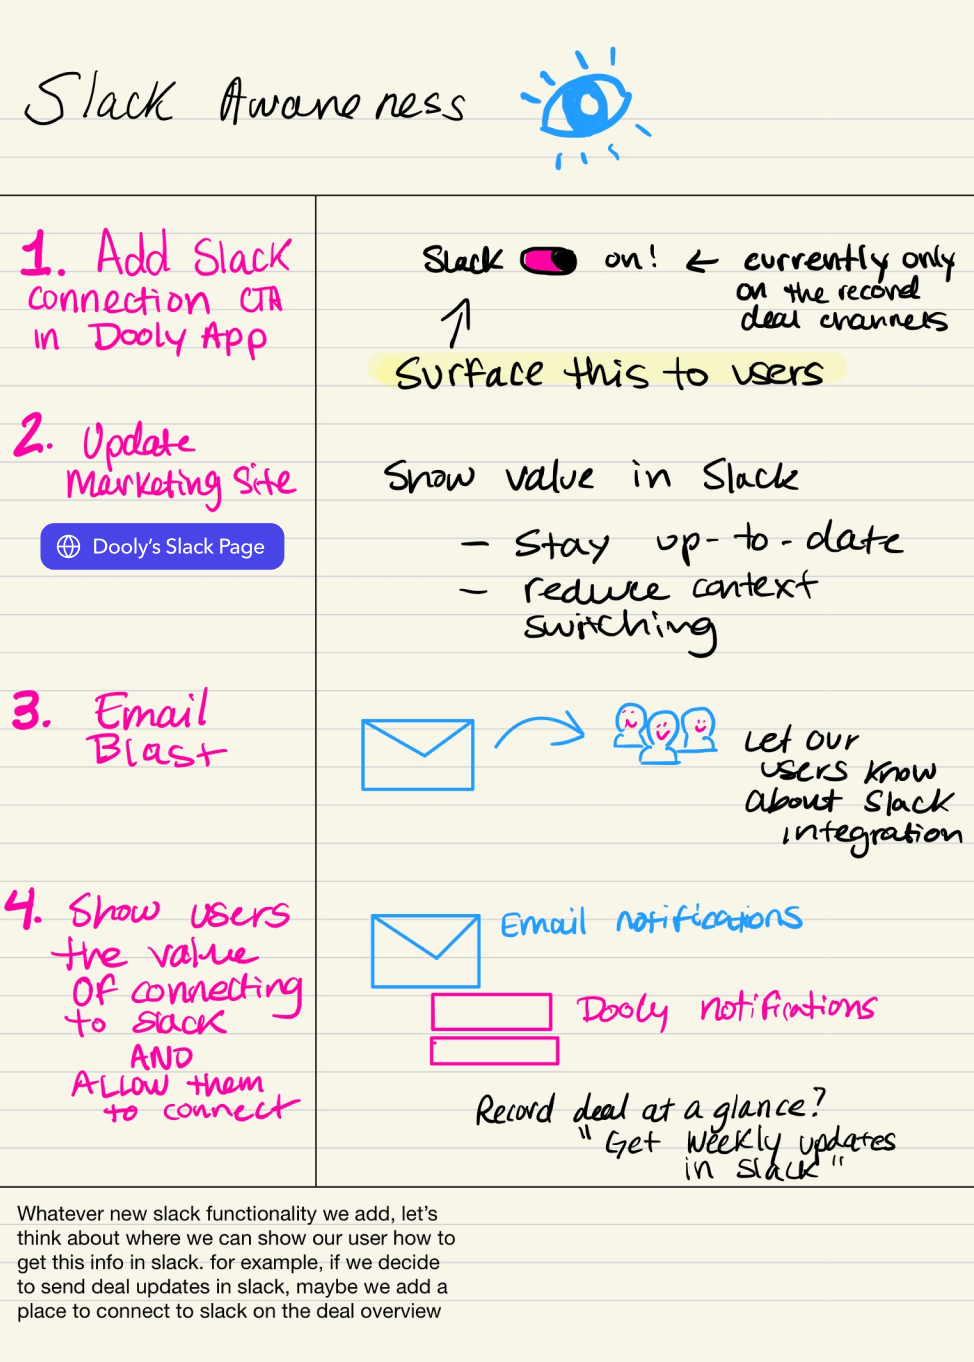 Slack Awareness
1. Add Slack
connection CTA
in Dooly App
Slack on! ← currently only
on the record
deal channels
↑
Surface this to users
2. Update
Marketing Site
Dooly's Slack Page
Show value in Slack
- Stay up-to-date
- reduce context
switching
3. Email
Blast
Let our
users know
about Slack
integration
4. Show users
the value
Of connecting
to slack
AND
Allow them
to connect
Email notifications
Dooly notifications
Record deal at a glance?
"Get weekly updates
in slack"
Whatever new slack functionality we add, let's
think about where we can show our user how to
get this info in slack. for example, if we decide
to send deal updates in slack, maybe we add a
place to connect to slack on the deal overview